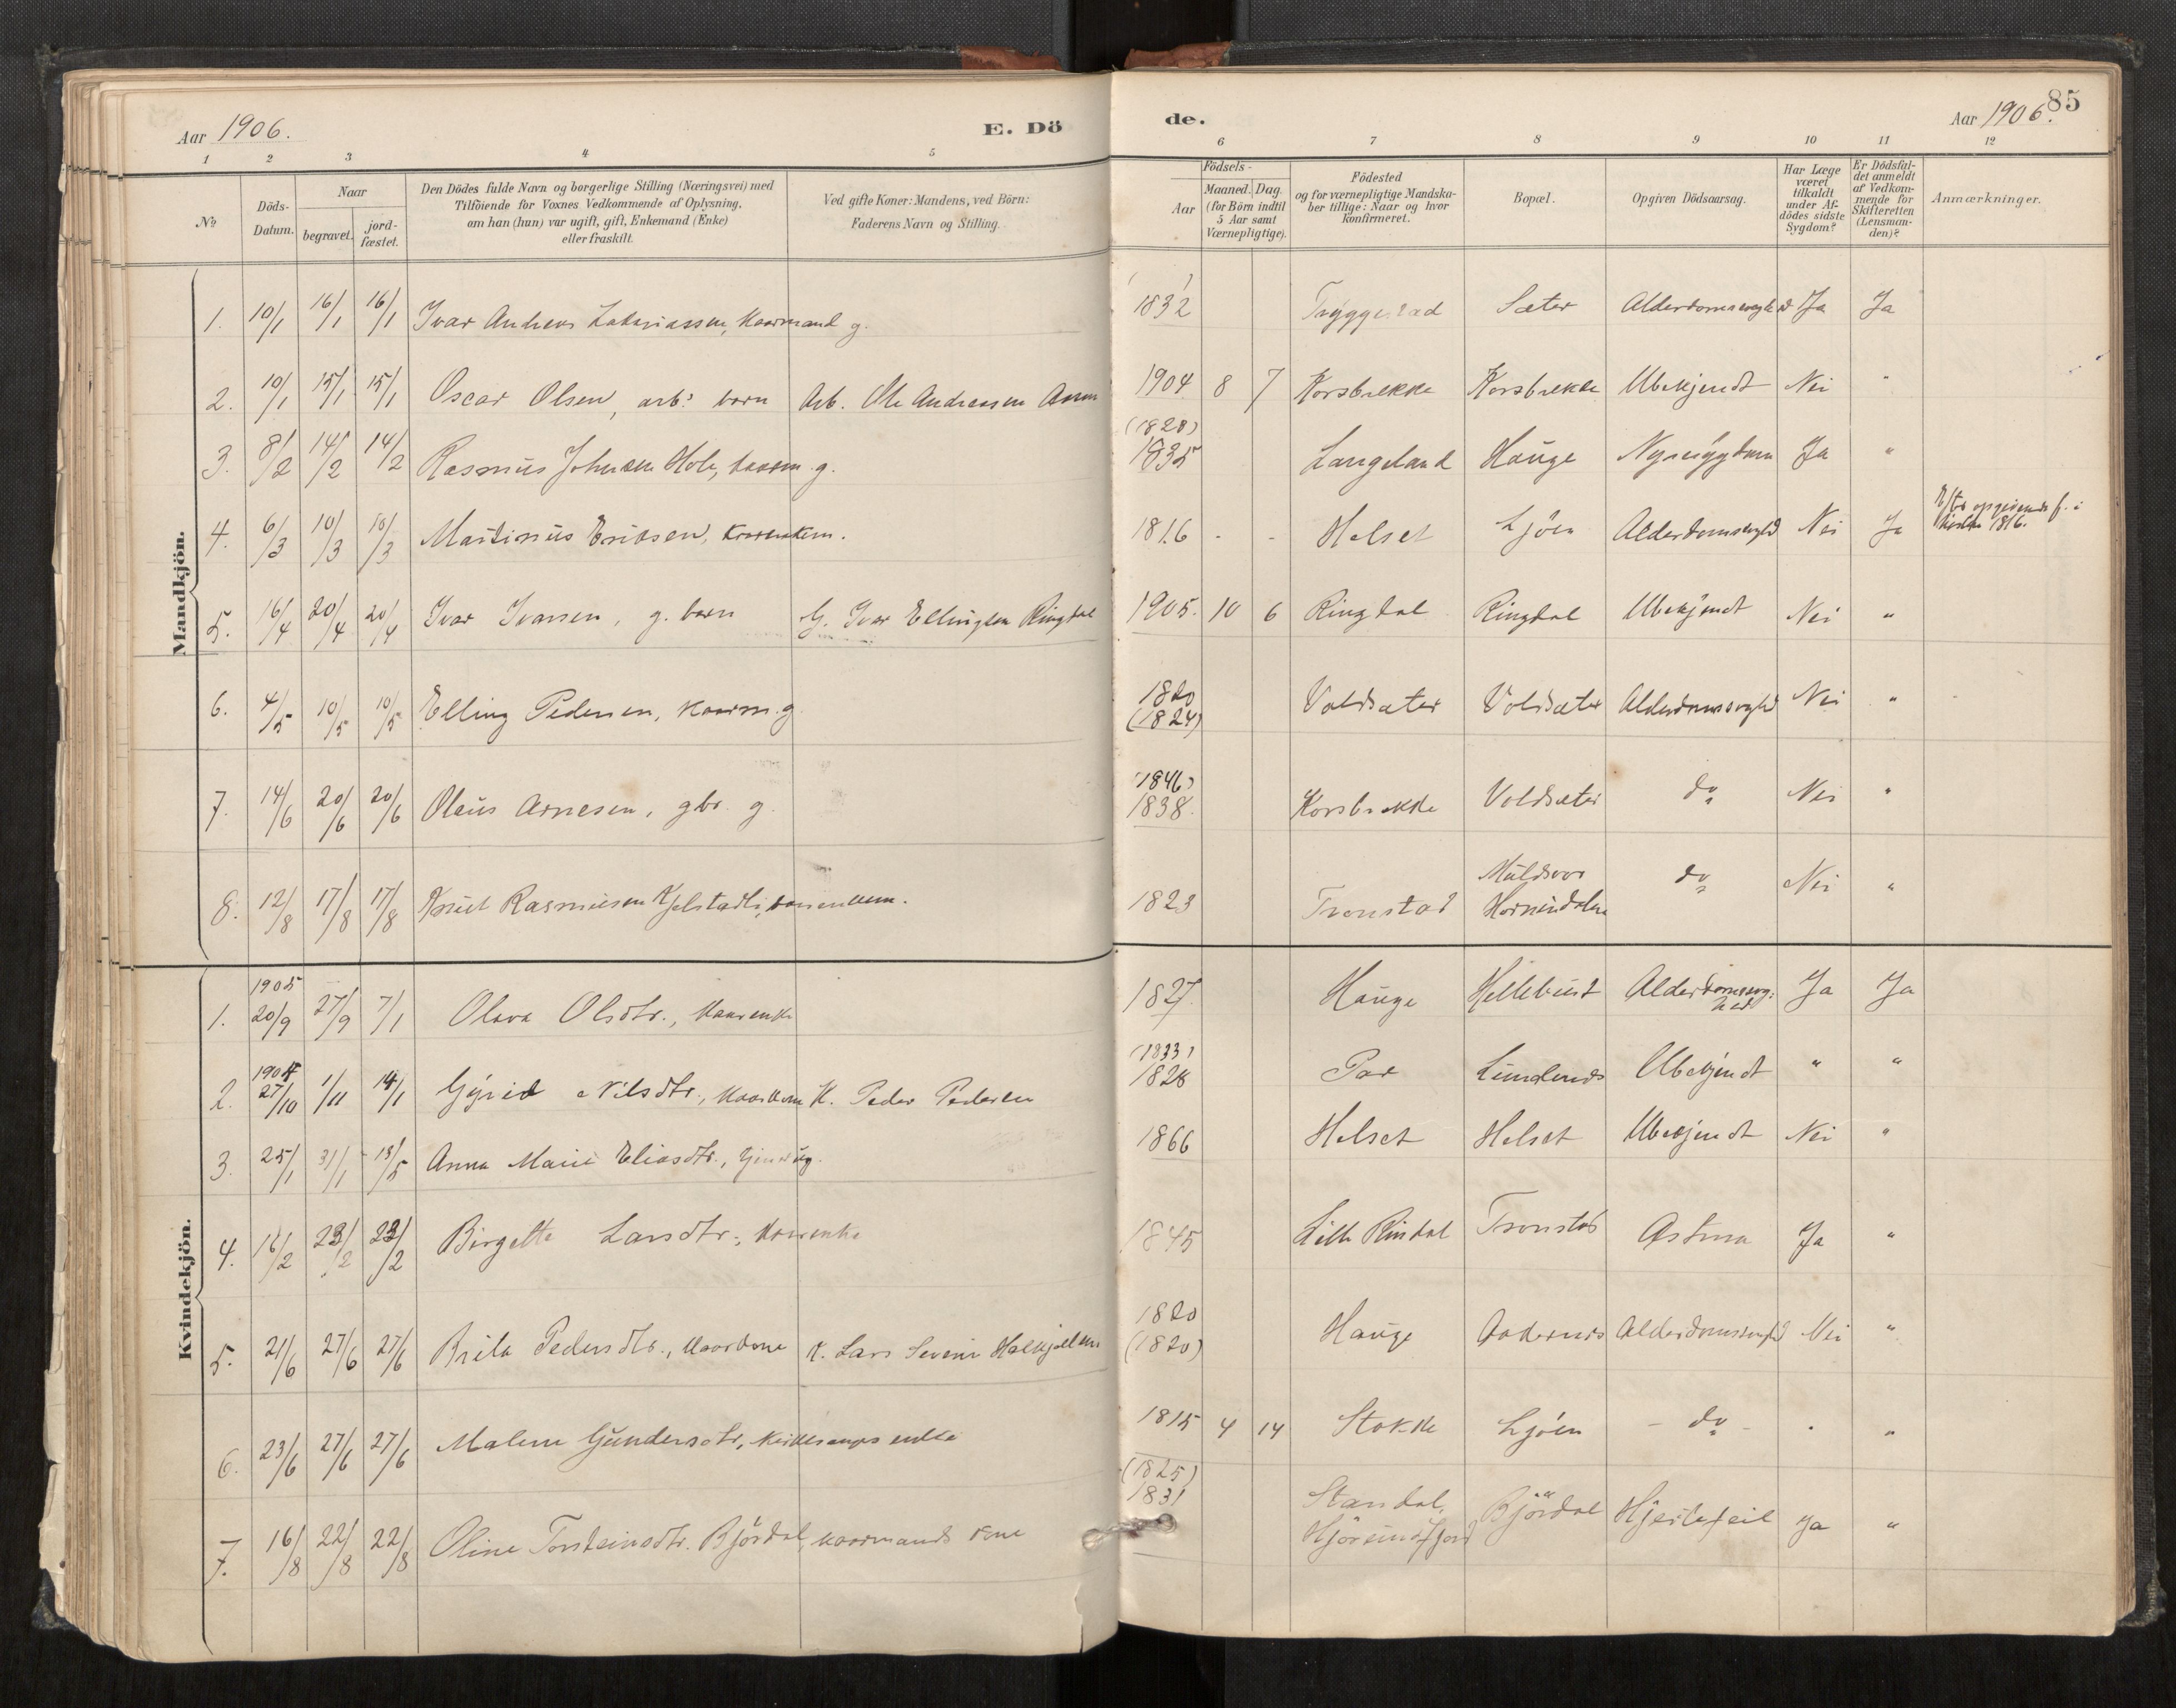 Aar 1906.
E. Dö
de.
Aar 1906.
85
1 2 3 4 5 6 7 8 9 10 11 12
No
Döds-Datum.
Naar
begravet.
jord-fæstet.
Den Dödes fulde Navn og borgerlige Stilling (Næringsvei) med
Tilföiende for Voxnes Vedkommende af Oplysning,
om han (hun) var ugift, gift, Enkemand (Enke)
eller fraskilt.
Ved gifte Koner: Mandens, ved Börn:
Faderens Navn og Stilling.
Födsels-
Aar
Maaned. Dag.
(for Börn indtil
5 Aar samt
Værnepligtige).
Födested
og for værnepligtige Mandska-
ber tillige: Naar og hvor
konfirmeret.
Bopæl.
Opgiven Dödsaarsag.
Har Læge
været
tilkaldt
under Af-
dödes sidste
Sygdom?
Er Dödsfal-
det anmeldt
af Vedkom-
mende for
Skifteretten
(Lensman-
den)?
Anmærkninger.
Mandkjön.
1. 10/1 16/1 16/1 Ivar Andreas Zakariassen, Kaarmand g. 1832 Tryggestad Sæter Alderdomssvaghed Ja Ja
2. 10/1 15/1 15/1 Oscar Olsen, arb: barn Arb. Ole Andreassen 1904 8 7 Korsbrekke Korsbrekke Ubekjendt Nei "
3. 8/2 14/2 14/2 Rasmus Johnsen Hole, kaarm. g. (1828) 1835 Langeland Hauge Nyresygdom Ja "
4. 6/3 10/3 10/3 Martinus Eriksen, kaarenkem. 1816 - - Helset Ljöen Alderdomssvaghd Nei Ja Efter opgivende f. i 1816.
5. 16/4 20/4 20/4 Ivar Ivarsen, g. barn G. Ivar Ellingsen Ringdal 1905. 10 6 Ringdal Ringdal Ubekjendt Nei "
6. 4/5 10/5 10/5 Elling Pedersen, Kaarm. g. 1820 (1824) Voldsæter Voldsæter Alderdomssvaghd Nei "
7. 14/6 20/6 20/6 Olaus Arnesen, gbr. g. (1846) 1838. Korsbrekke Voldsæter do Nei "
8. 12/8 17/8 17/8 Knut Rasmusen Kjelstadli, kaarenkem. 1823 Tronstad Muldsvor Hornindalen do Nei "
Kvindekjön.
1. 1905 20/9 27/9 7/1 Olava Olsdtr., Kaarenke 1827. Hauge Hellebust Alderdomssvag: hed Ja Ja
2. 27/10 1/11 14/1 Gjurid Nilsdtr., Kaarkone K. Peder Pedersen (1833) 1828 Par Lundenes Ubekjendt " "
3. 25/1 31/1 18/5 Anna Marie Eliasdtr., 1866 Helset Helset Ubekjendt Nei "
4. 16/2 23/2 23/2 Birgitte Larsdtr., Kaarenke 1845 Lille Rindal Tronstad Astma Ja "
5. 21/6 27/6 27/6 Brita Pedersdtr., Kaarkone K. Lars Severin 1820 (1820) Hauge Aadernes Alderdomssvaghd Nei "
6. 23/6 27/6 27/6 Malene Gundersdtr., enke 1815 4 14 Stokke Ljöen - do - . "
7. 16/8 22/8 22/8 Oline Torsteinsdtr. Bjórdal, kaarmands kone (1825) 1831 Standal, Hjörundfjord Bjórdal Hjertefeil Ja "